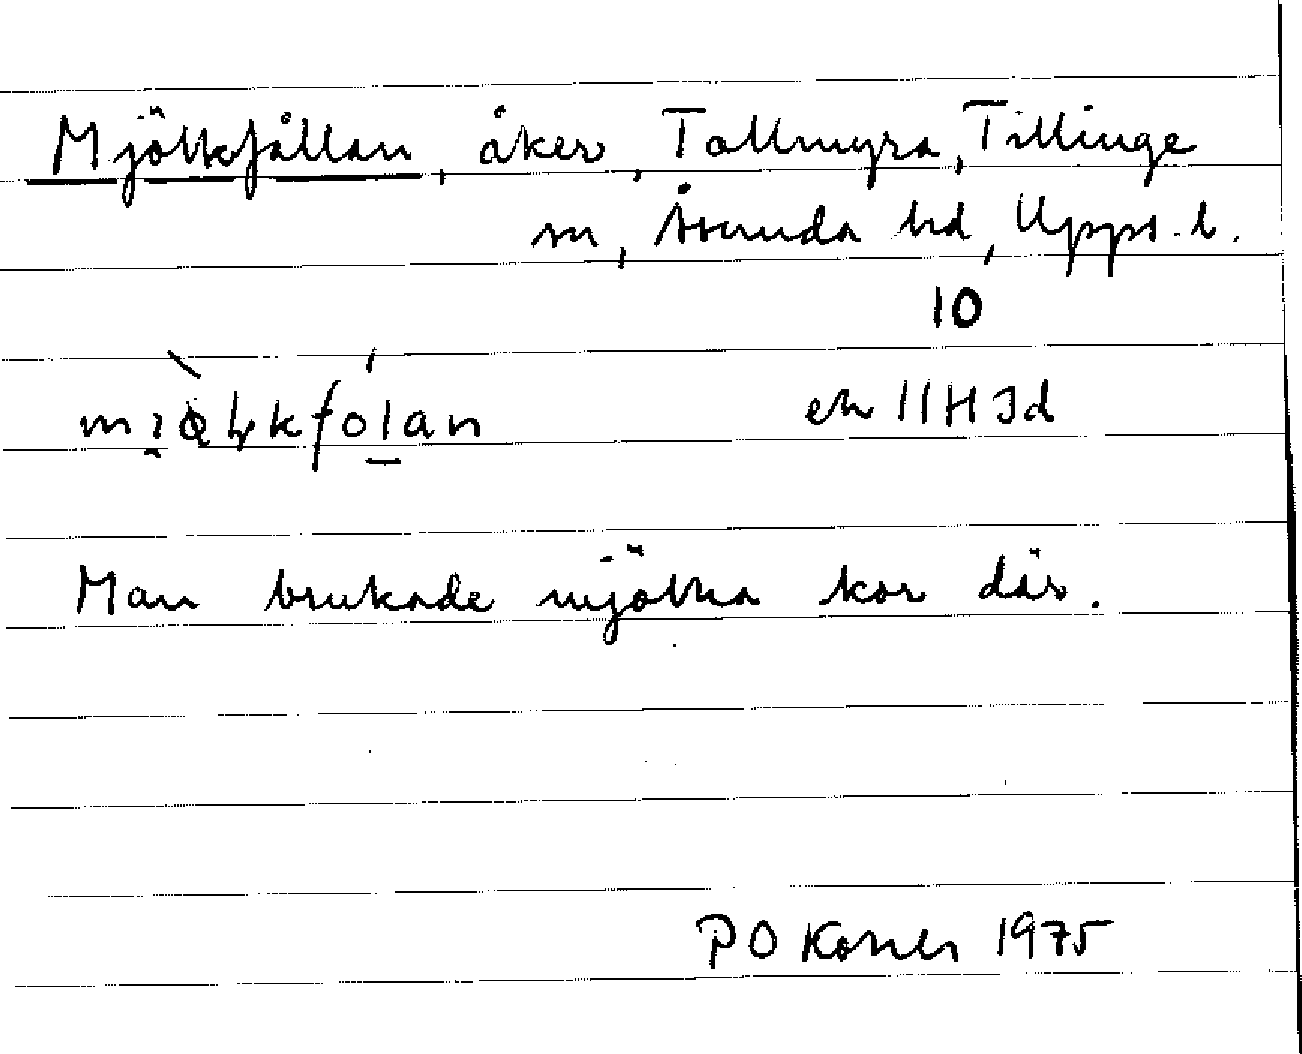 Mjölkfållan, åker, Tallmyra, Tillinge
sn, Åsunda hd, Upps. l.
10
mi̯ø̀ɬkfólan ek 11H 3d
Man brukade mjölka kor där.
P O 1975